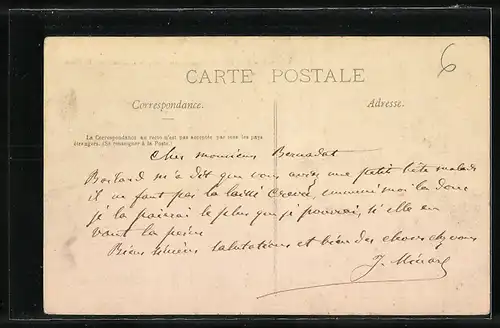 6
CARTE POSTALE
Correspondance.
Adresse.
La Correspondance au recto n'est pas acceptée par tous les pays
étrangers. (Se renseigner à la Poste.)
Cher monsieur Bernadat
m'a dit que vous aviez une petit bête malade
il ne faut pas la laisser crevé, emmené moi la donc
je la pairai le plus que je pourrai, si elle en
vaut la peine
Bien sincères salutations et bien des choses chez vous
J. Ménard